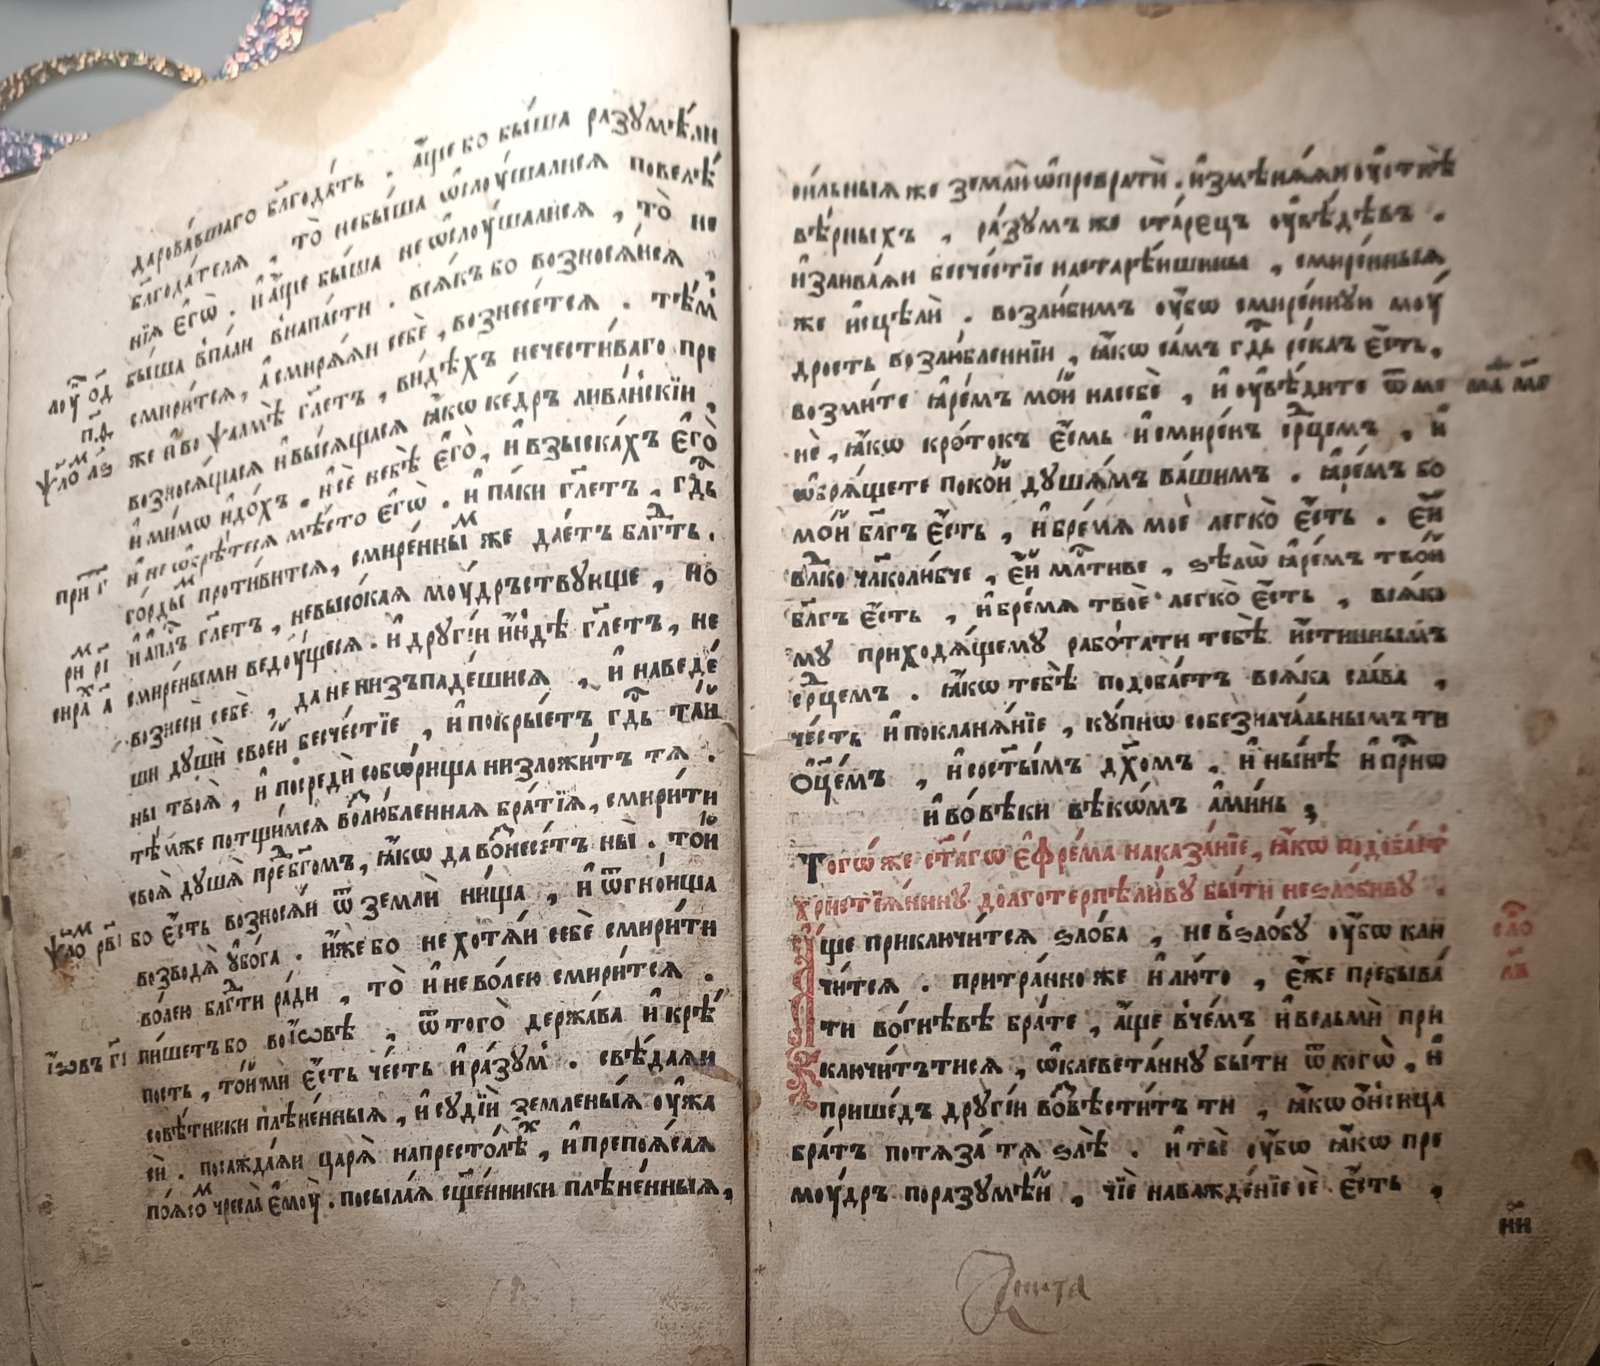 даровавшаго бл҃года́ть . а҆́ще бо бы́ша разꙋмѣ́ли
бл҃года́телѧ , то̀ не бы́ша ѡ҆слоу́шалисѧ повелѣ́
нїѧ є҆гѡ̀ . и҆ а҆́ще бы́ша не ѡ҆слоу́шалисѧ , то̀ не
бы́ша впа́ли в напасти . всѧ́къ бо возносѧ́исѧ
лоу҃ ѻд
смири́тсѧ , а҆ смирѧ́ѧи себѐ , вознесе́тсѧ . тѣ́м
п.д.
же и҆ во ѱалмѣ̀ гл҃етъ , ви́дѣхъ нечести́ваго пре
ѱло́м л҃ѕ
возносѧ́щасѧ и҆ вы́сѧщасѧ ꙗ҆́кѡ ке́дръ лива́нскїи ,
и҆ ми́мѡ и҆до́хъ . и҆ сѐ не бѣ̀ є҆го̀ , и҆ взыска́хъ є҆го̀
и҆ не ѡ҆брѣ́тесѧ мѣ́сто є҆гѡ̀ . и҆ па́ки гл҃етъ , гд҃ь
при г҃
го́рдым проти́витсѧ , смире́нным же дае́тъ бл҃гть .
ри р҃і
и҆ а҆п҃лъ гл҃етъ , не высо́каѧ моу́дръствꙋюще , но
смире́ными ведоу́щесѧ . и҆ дрꙋгі́и и҆́ндѣ гл҃етъ , не
сира҃х а҃
вознесѝ себѐ , да не низъпаде́шисѧ , и҆ наведе́
ши дꙋшѝ свое́й бесче́стїе , и҆ покры́етъ гд҃ь та́й
ны твоѧ̀ , и҆ посредѝ собѡ́рища низложи́тъ тѧ .
тѣ́мже потщи́мсѧ бо҃лю́бленнаѧ бра́тїѧ , смири́ти
своѧ̀ дꙋшѧ̀ пред бг҃омъ , ꙗ҆́кѡ да вознесе́тъ ны̀ . то́й
ѱло́м рв҃і
бо є҆́сть возносѧ́и ѿ землѝ ни́ща , и҆ ѿ гно́ища
возводѧ̀ ᲂу҆бо́га . и҆́же бо не хотѧ́и себѐ смири́ти
во́лею бл҃гти ра́ди , то̀ и҆ не во́лею смири́тсѧ .
і҆́ѡвъ г҃і
пи́шетъ бо во і҆́ѡвѣ , ѿ того̀ держа́ва и҆ крѣ́
пость , то́й ми є҆́сть че́сть и҆ ра́зꙋм . свѣ́даѧи
совѣ́тники плѣне́нныѧ , и҆ сꙋдїѝ землены́ѧ оу҆жа
сѝ . посажда́ѧи царѧ̀ на престо́лѣх , и҆ препоѧ́саѧ
по́ѧсом чресла̀ є҆моу̀ . посыла́ѧ сщ҃е́нники плѣне́нныѧ ,
си́льныѧ же землѝ ѿпревратѝ . и҆змѣнѧ́ѧи оу҆стнѣ̀
вѣ́рныхъ , ра́зꙋмъ же ста́рецъ оу҆вѣ́дѣвъ .
и҆злива́ѧи бесче́стїе на старѣ́ишины , смире́нныѧ
же и҆сцѣлѝ . возлю́бимъ оу҆́бѡ смире́нꙋю моу́
дрость возлю́бленнїи , ꙗ҆́кѡ са́мъ гд҃ь ре́клъ є҆́сть .
возми́те ꙗ҆ре́мъ мо́й на себѐ , и҆ оу҆вѣ́дите ѿ ме
мат м҃ѳ
нѐ , ꙗ҆́кѡ кро́токъ є҆́смь и҆ смире́нъ ср҃дцемъ , и҆
ѡ҆брѧ́щете поко́й дꙋшѧ́мъ ва́шимъ . ꙗ҆ре́мъ бо
мо́й бл҃гъ є҆́сть , и҆ бре́мѧ моѐ легко̀ є҆́сть . є҆́й
вл҃ко чл҃колю́бче , є҆́й мл҃стиве , ѕѣлѡ̀ ꙗ҆ре́мъ тво́й
бл҃гъ є҆́сть , и҆ бре́мѧ твоѐ легко̀ є҆́сть , всѧ́ко
мꙋ приходѧ́щемꙋ рабо́тати тебѣ̀ и҆́стиннымъ
ср҃дцемъ . ꙗ҆́кѡ тебѣ̀ подоба́етъ всѧ́ка сла́ва ,
че́сть и҆ покланѧ́нїе , кꙋ́пнѡ со безнача́льнымъ ти
ѻ҆ц҃е́мъ , и҆ со ст҃ы́мъ дх҃омъ , и҆ ны́нѣ и҆ при́снѡ
и҆ во вѣ́ки вѣкѡ́мъ а҆ми́нь ,
Тогѡ́ же ст҃а́гѡ є҆фре́ма наказа́нїе , ꙗ҆́кѡ подоба́ет
христїѧ́нинꙋ долготерпѣли́вꙋ бы́ти неѕло́бивꙋ .
сло҃
л҃в
А҆́ще приключи́тсѧ ѕло́ба , не в ѕло́бꙋ оу҆́бѡ клю
чи́тсѧ . при тра́нко же и҆ лю́то , є҆́же пребыва́
ти во гнѣ́вѣ бра́те , а҆́ще в че́мъ и҆ ведьмѝ при
ключи́тътисѧ , ѡ҆клевета́ннꙋ бы́ти ѿ когѡ̀ , и҆
прише́дъ дрꙋгі́и возвѣсти́тъ ти , ꙗ҆́кѡ ѻ҆нси́ца
бра́тъ потѧза́ тѧ ѕлѣ̀ . и҆ ты̀ оу҆́бѡ ꙗ҆́кѡ пре
моу́дръ поразꙋмѣ́й , чїѐ наважде́нїе сѐ є҆́сть ,
н҃и